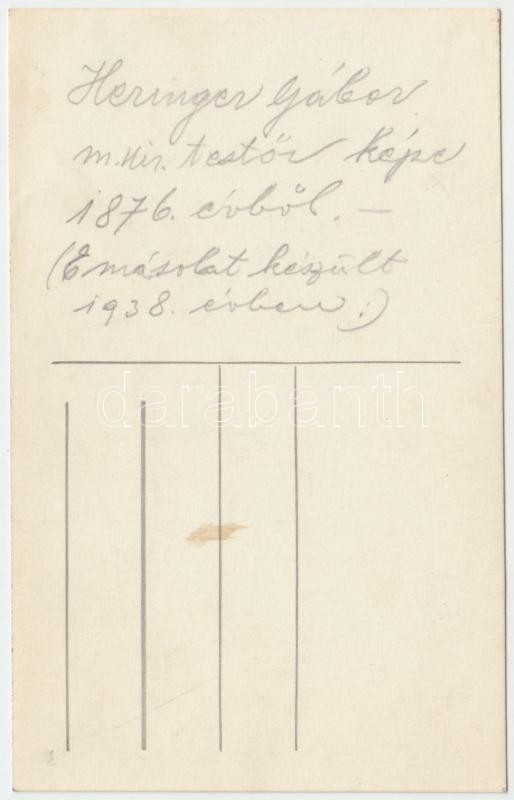 Heringer Gábor
m. kir. testőr képe
1876. évből. —
(E másolat készült
1938. évben :)
darabanth